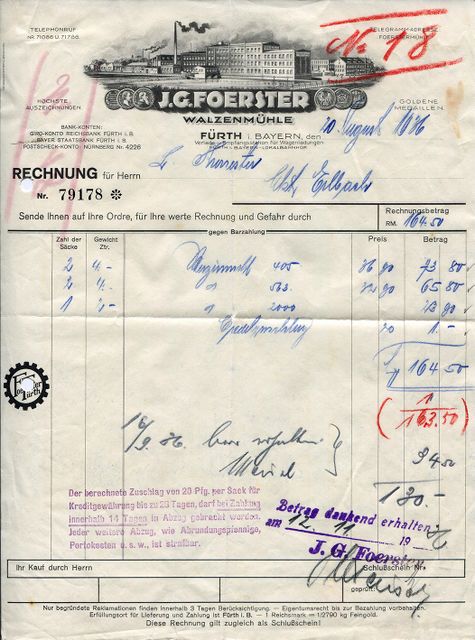 TELEPHONRUF
NR. 71086 U. 71786.
TELEGRAMMADRESSE
FOERSTERMÜHLE
No 18
HÖCHSTE
AUSZEICHNUNGEN
GOLDENE
MEDAILLEN
J.G. FOERSTER
WALZENMÜHLE
BANK-KONTEN:
GIRO-KONTO REICHSBANK FÜRTH i.B.
BAYER STAATSBANK FÜRTH i. B.
POSTSCHECK-KONTO: NÜRNBERG Nr. 4226
FÜRTH i. BAYERN, den
Verlade- u. Empfangsstation für Wagenladungen
FÜRTH i. BAYERN - LOKALBAHNHOF
RECHNUNG für Herrn
Nr. 79178 ✻
Sende Ihnen auf Ihre Ordre, für Ihre werte Rechnung und Gefahr durch
Rechnungsbetrag
RM. 164.50
gegen Barzahlung
Zahl der Säcke Gewicht Ztr. Preis Betrag
2 4.- 405 36 90 73 80
2 4.- 563 32 90 65 80
1 2.- 2000 23 90
20 1.-
164 50
1
163.50
34 50
130.-
Der berechnete Zuschlag von 20 Pfg. per Sack für
Kreditgewährung bis zu 28 Tagen, darf bei Zahlung
innerhalb 14 Tagen in Abzug gebracht werden.
Jeder weitere Abzug, wie Abrundungspfennige,
Portokosten u.s.w., ist strafbar.
Betrag dankend erhalten
am 12. 11. 19
J. G. Foerster
Ihr Kauf durch Herrn
Schlußschein Nr.
geprüft:
Nur begründete Reklamationen finden innerhalb 3 Tagen Berücksichtigung. – Eigentumsrecht bis zur Bezahlung vorbehalten.
Erfüllungsort für Lieferung und Zahlung ist Fürth i. B. – 1 Reichsmark = 1/2790 kg Feingold.
Diese Rechnung gilt zugleich als Schlußschein!